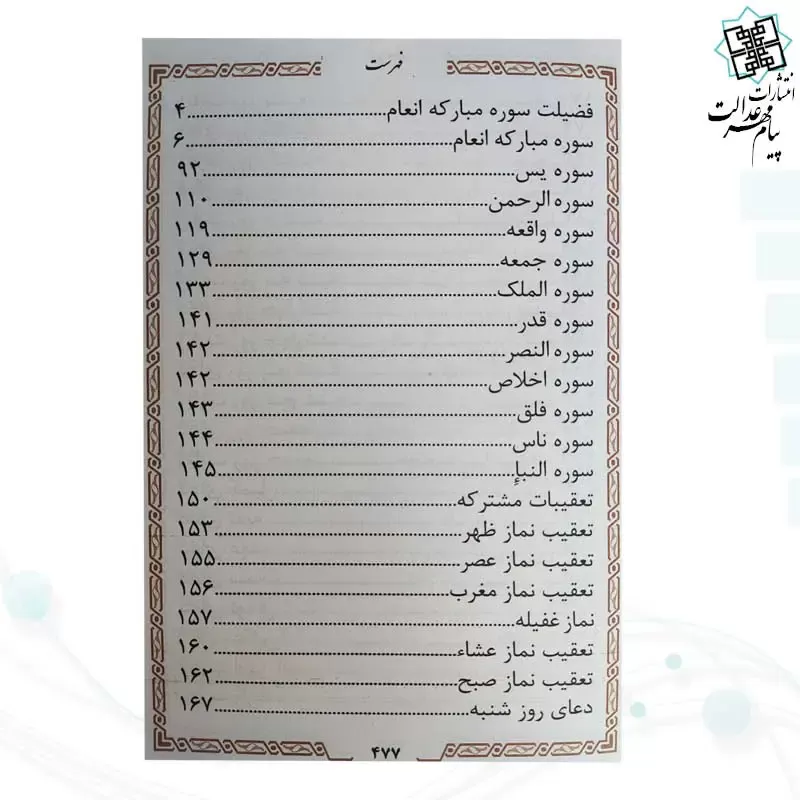 فهرست
فضیلت سوره مبارکه انعام................................۴
سوره مبارکه انعام................................۶
سوره یس................................۹۲
سوره الرحمن................................۱۱۰
سوره واقعه................................۱۱۹
سوره جمعه................................۱۲۹
سوره الملک................................۱۳۳
سوره قدر................................۱۴۱
سوره النصر................................۱۴۲
سوره اخلاص................................۱۴۲
سوره فلق................................۱۴۳
سوره ناس................................۱۴۴
سوره النبإ................................۱۴۵
تعقیبات مشترکه................................۱۵۰
تعقیب نماز ظهر................................۱۵۳
تعقیب نماز عصر................................۱۵۵
تعقیب نماز مغرب................................۱۵۶
نماز غفیله................................۱۵۷
تعقیب نماز عشاء................................۱۶۰
تعقیب نماز صبح................................۱۶۲
دعای روز شنبه................................۱۶۷
۴۷۷
انتشارات
پیام مهر عدالت